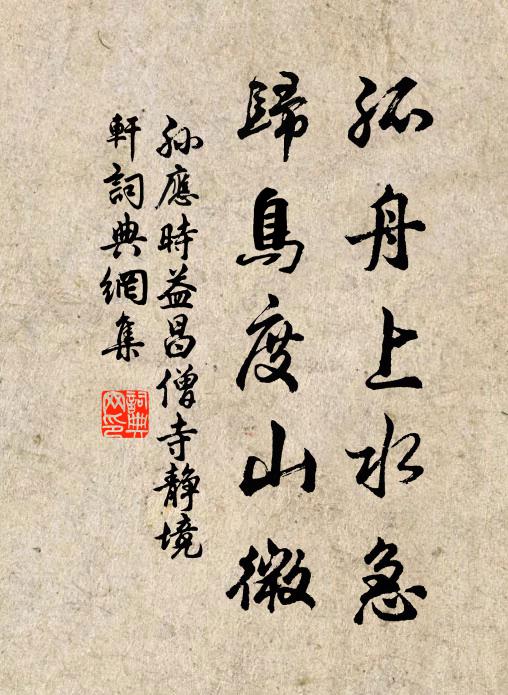 孤舟上水急
歸鳥度山微
孙應時益昌僧寺静境
軒詞典網集
詞典網印